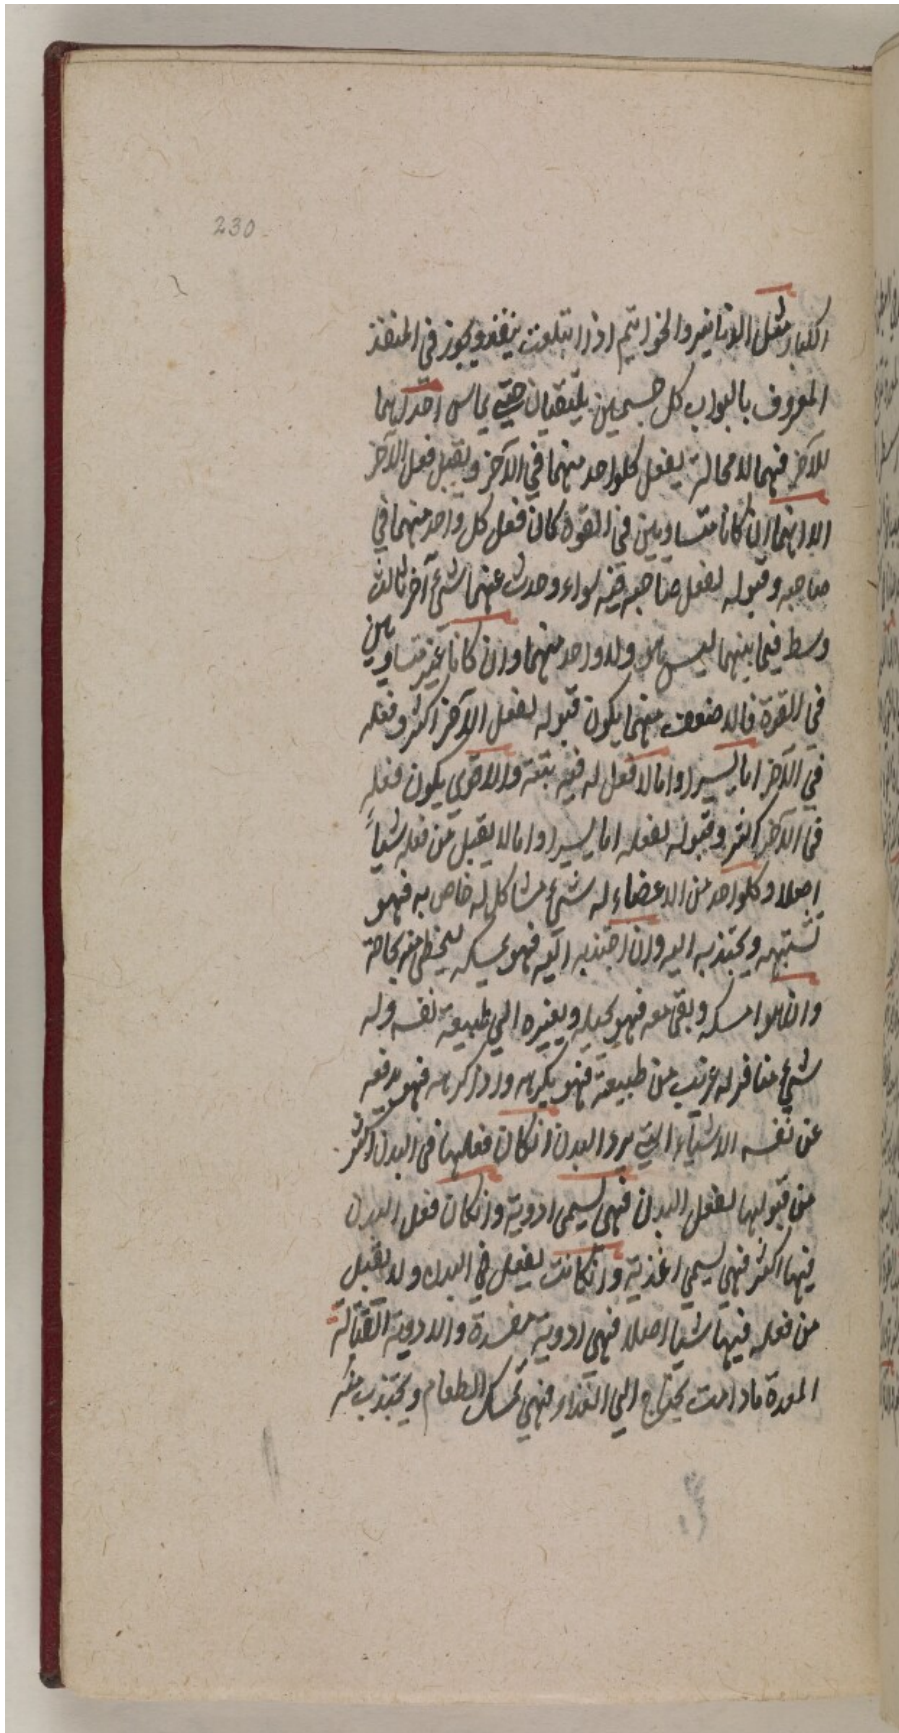 230
الكبار مثل الدنانير والخواتيم اذا ابتلعت ينفذ ويجوز في المنفذ
المعروف بالبواب كل جسمين يلتقيان حتى يماس احدايهما
للآخر فهما لا محالة يفعل كلواحد منهما في الآخر ويقبل فعل الآخر
الا انهما ان كانا متساويين في القوة كان فعل كل واحد منهما في
صاحبه وقبوله لفعل صاحبه فيه سواء وحدث عنهما شئ آخر ثالث
وسط فيما بينهما ليس هو ولا واحد منهما وان كانا غير متساويين
في القوة فالاضعف منهما يكون قبوله لفعل الآخر اكثر وفعله
في الآخر اما يسيرا واما لا فعل له فيه بتة والاقوي يكون فعله
في الآخر اكثر وقبوله لفعله اما يسيرا واما لا يقبل من فعله شيأ
اصلا وكلواحد من الاعضاء له شئ مشاكل له خاص به فهو
تشتهيه ويجتذبه اليه وان اجتذبه اليه فهو يمسكه ليحظي منه بحاجة
وان هو امسكه وبقي معه فهو يحيله ويغيره الي طبيعة نفسه وله
شئ منافر له غريب من طبيعة فهو يكرهه واذا كرهه فهو يدفعه
عن نفسه الاشياء التي يرد البدن انكان فعلها في البدن اكثر
من قبولها لفعل البدن فهي تسمي ادوية وانكان فعل البدن
فيها اكثر فهي تسمي اغذية وانكانت يفعل في البدن ولا يقبل
من فعله فيها شيأ اصلا فهي ادوية مفسدة والادوية القتالة
المعدة مادامت يحتاج الي الغذاء فهي تمسك الطعام ويجتذب منه